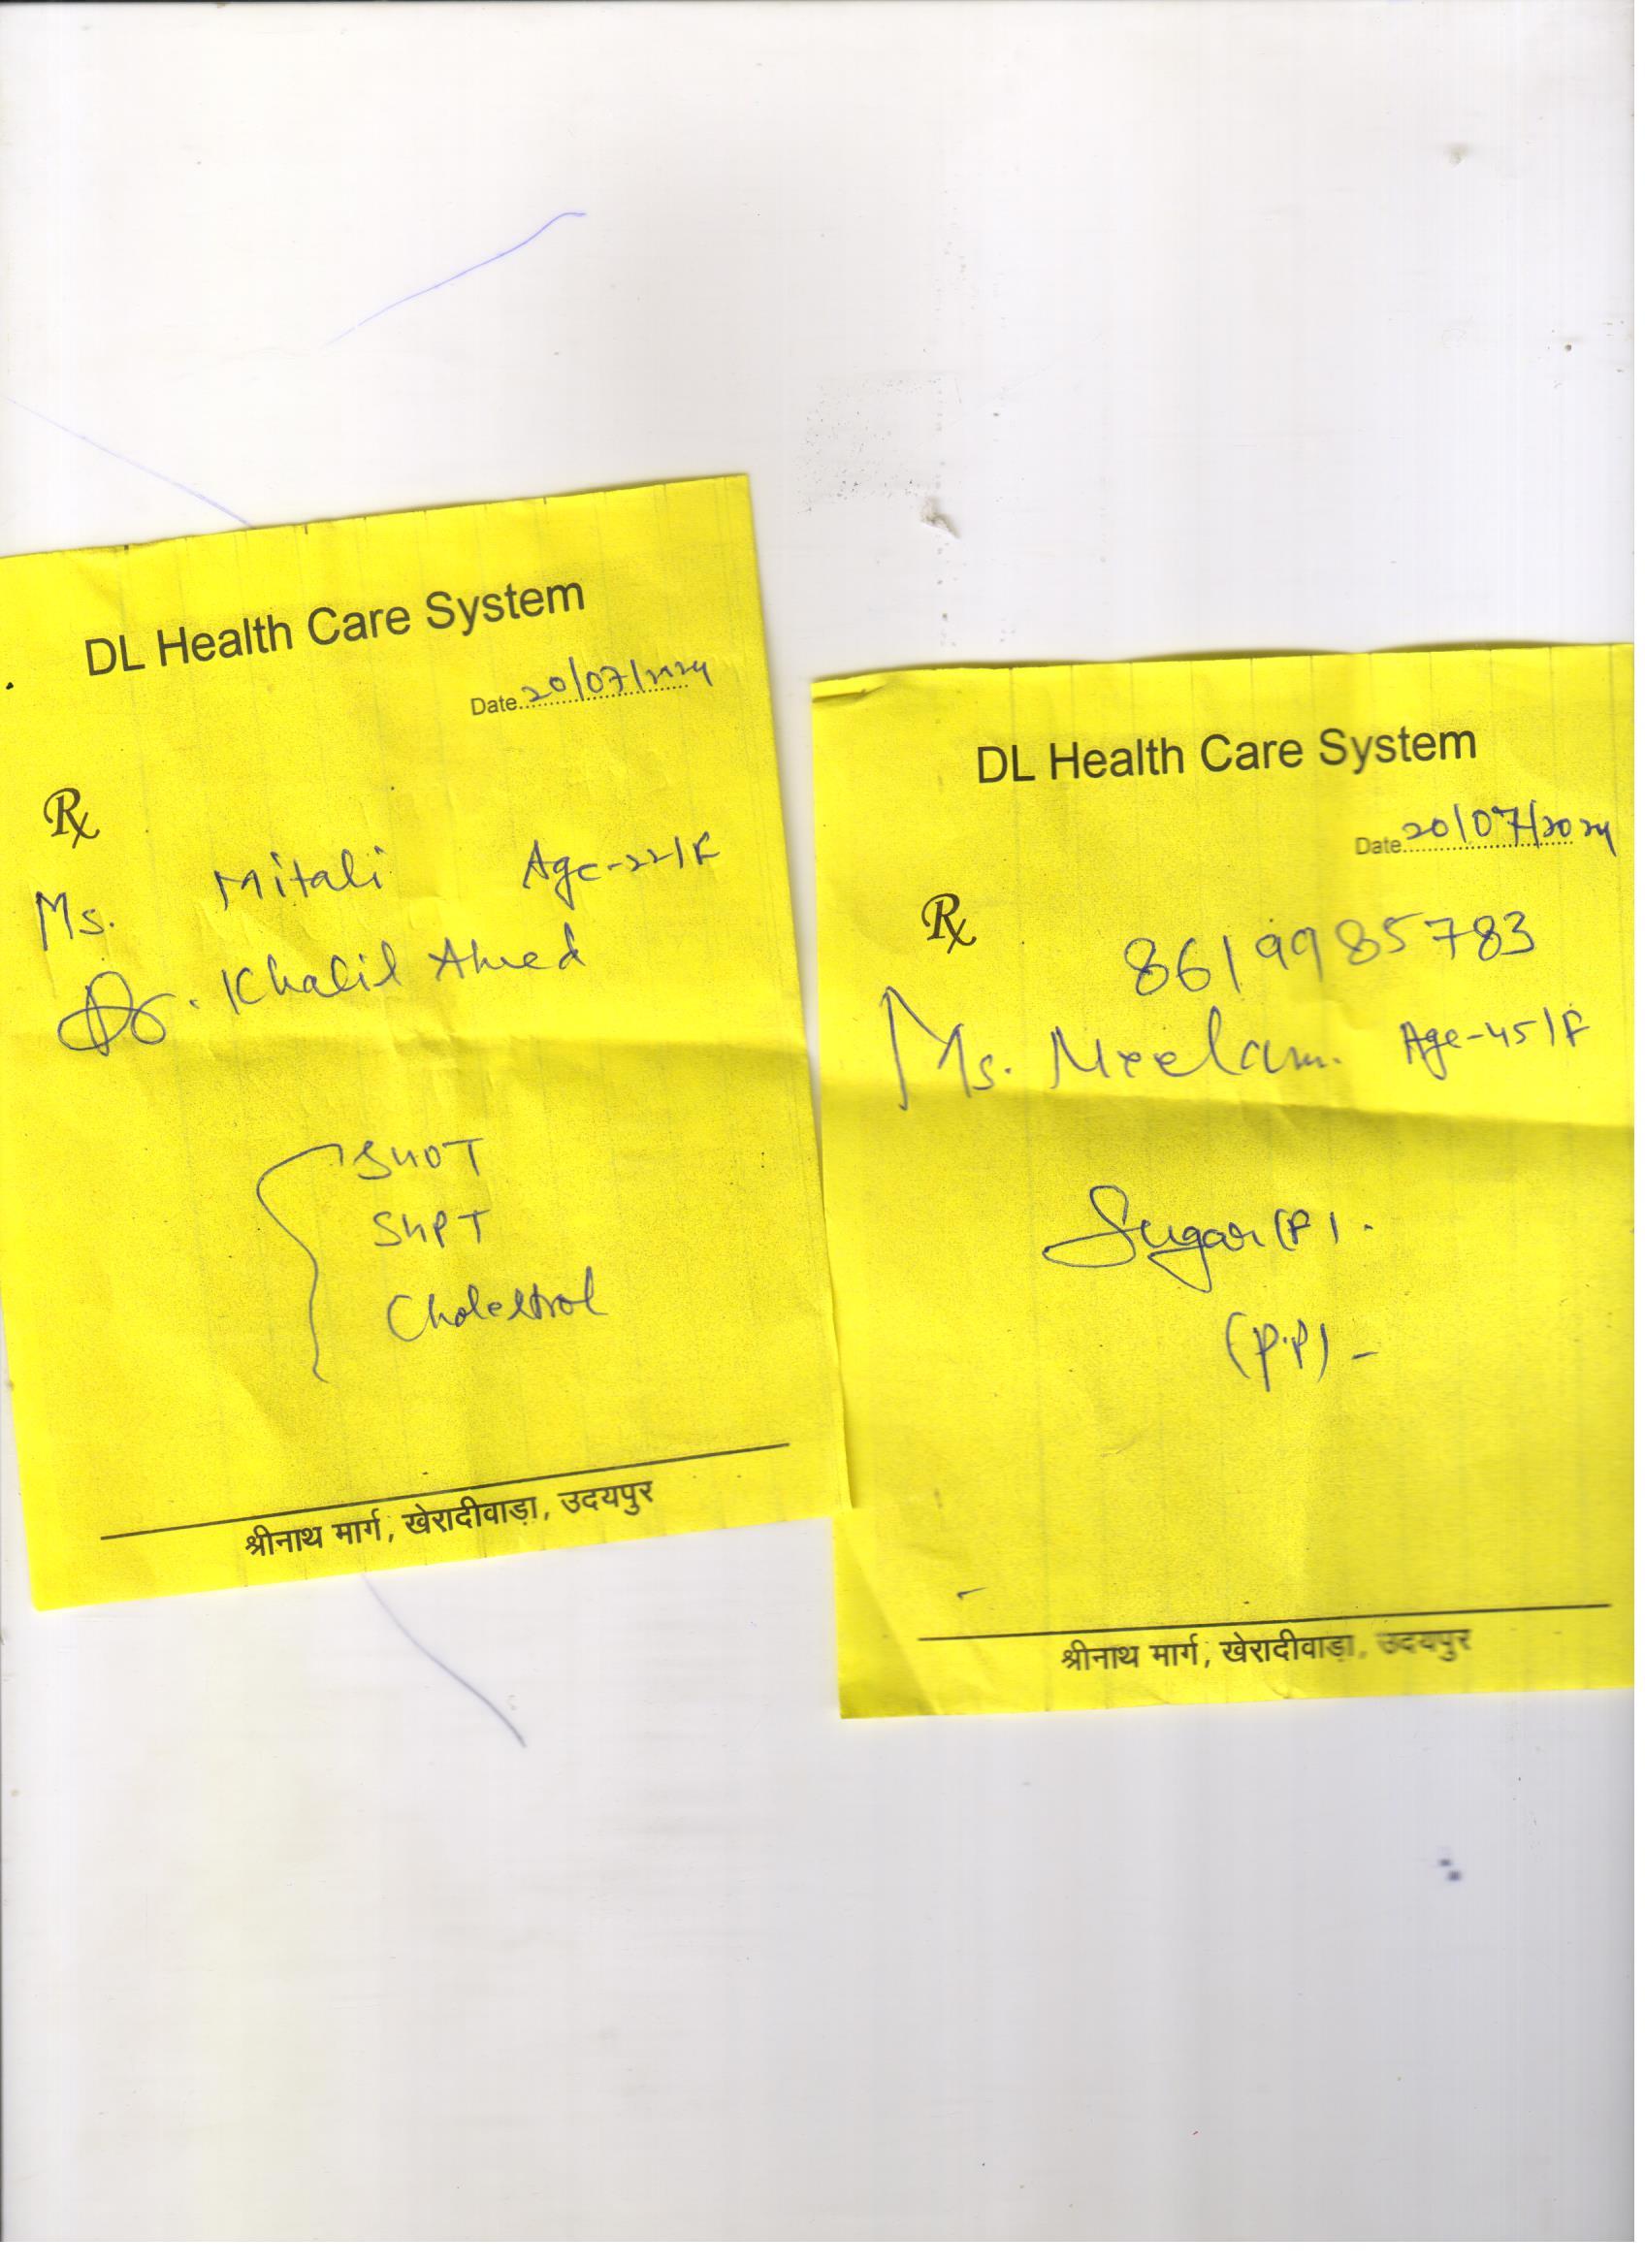 DL Health Care System
Date. 20/07/2024
Rx
Ms. Mitali Age-22/F
Dr. Khalil Ahmed
SGOT
SGPT
Cholestrol
श्रीनाथ मार्ग, खेरादीवाड़ा, उदयपुर
DL Health Care System
Date. 20/07/2024
Rx
8619985783
Ms. Neelam. Age-45/F
Sugar (F).
(P.P) -
श्रीनाथ मार्ग, खेरादीवाड़ा, उदयपुर